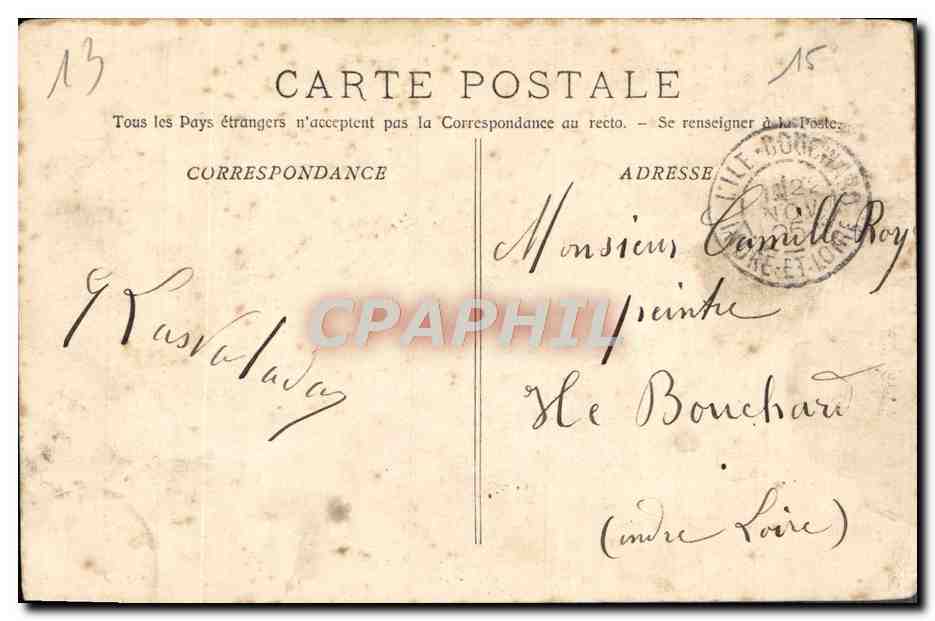 13
15
CARTE POSTALE
Tous les Pays étrangers n'acceptent pas la Correspondance au recto. – Se renseigner à la Poste.
CORRESPONDANCE
ADRESSE
L'ILE-BOUCHARD
22
NOV
05
INDRE-ET-LOIRE
Monsieur Camille Roy
peintre
Ile Bouchard
(indre Loire)
CPAPHIL